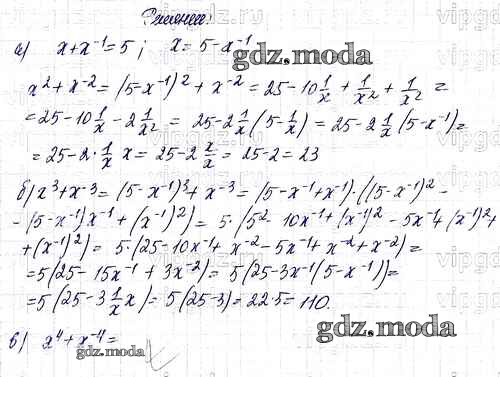 Решение.
а) x + x⁻¹ = 5; x = 5 - x⁻¹
gdz.moda
x² + x⁻² = (5-x⁻¹)² + x⁻² = 25 - 10 1/x + 1/x² + 1/x² =
= 25 - 10 1/x - 2 1/x² = 25 - 2 1/x (5 - 1/x) = 25 - 2 1/x (5 - x⁻¹) =
= 25 - 2 · 1/x x = 25 - 2 x/x = 25 - 2 = 23
б) x³ + x⁻³ = (5-x⁻¹)³ + x⁻³ = (5-x⁻¹+x⁻¹)·((5-x⁻¹)² -
- (5-x⁻¹)x⁻¹ + (x⁻¹)²) = 5·(5² - 10x⁻¹ + (x⁻¹)² - 5x⁻¹ + (x⁻¹)² +
+ (x⁻¹)²) = 5·(25 - 10x⁻¹ + x⁻² - 5x⁻¹ + x⁻² + x⁻²) =
= 5(25 - 15x⁻¹ + 3x⁻²) = 5(25 - 3x⁻¹(5 - x⁻¹)) =
= 5(25 - 3 1/x x) = 5(25-3) = 22·5 = 110.
gdz.moda
в) x⁴ + x⁻⁴ =
gdz.moda